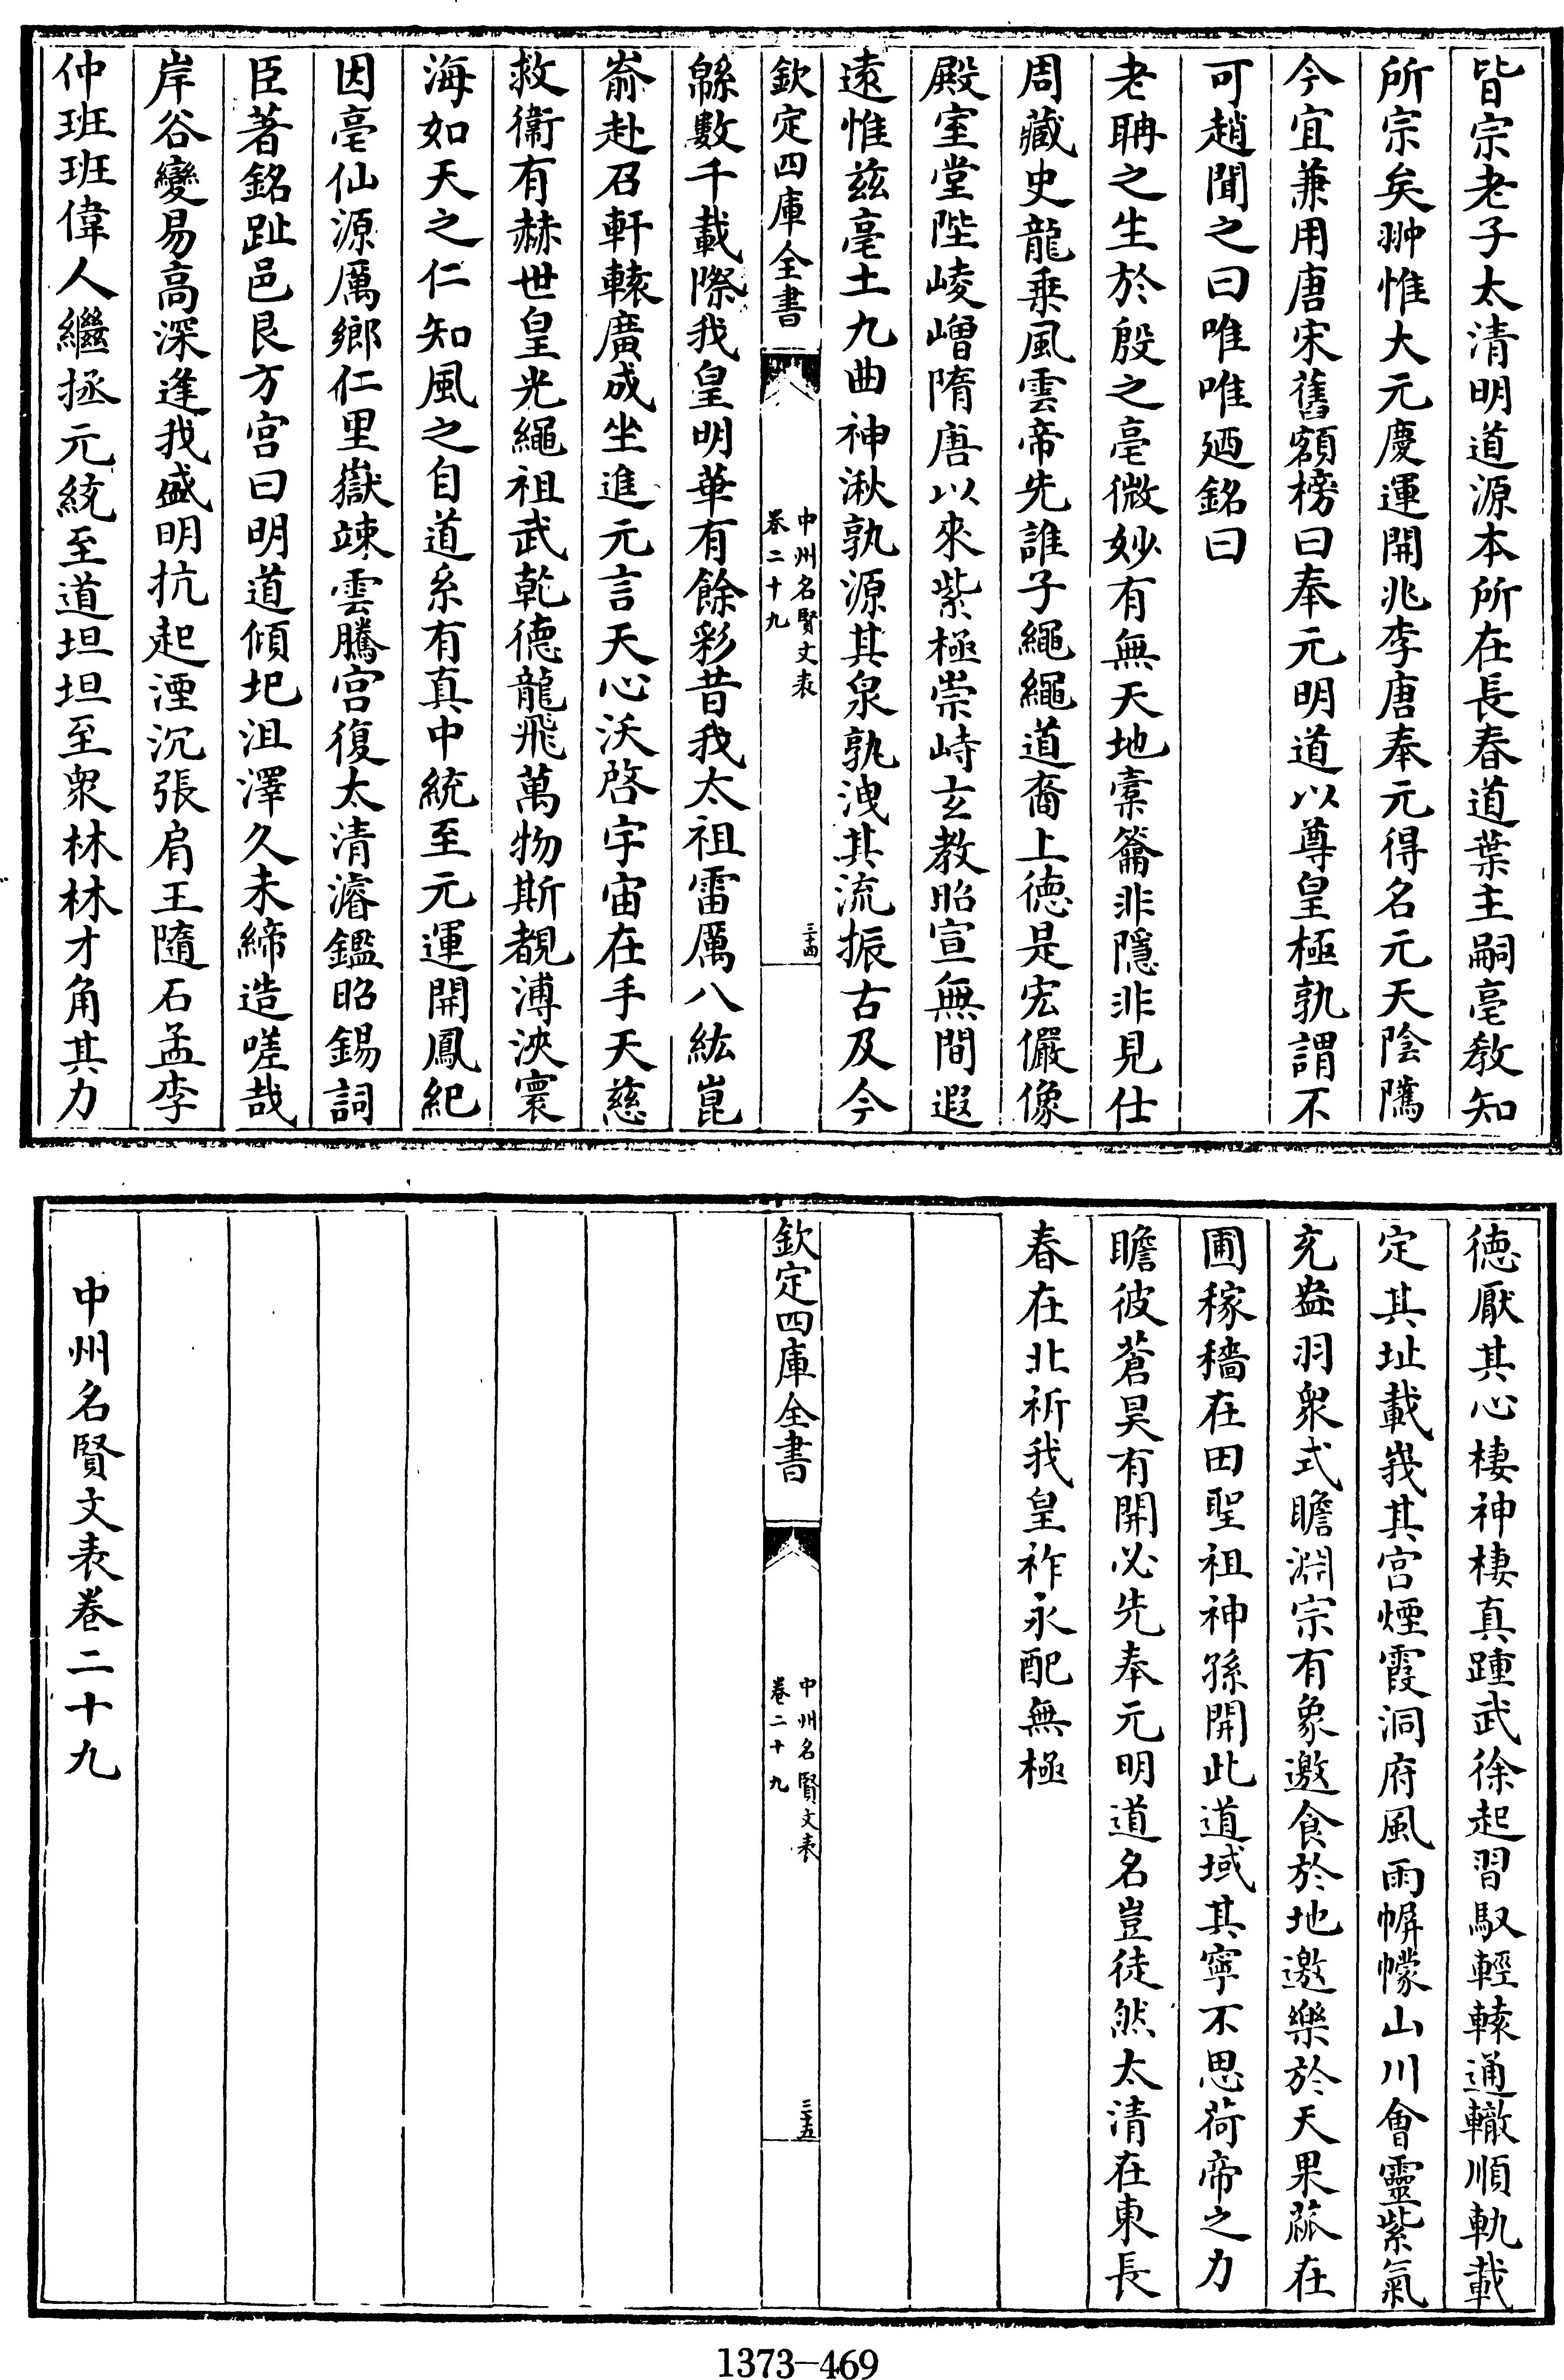 皆宗老子太清明道源本所在長春道葉主嗣亳教知
所宗矣翀惟大元慶運開兆李唐奉元得名元天陰隲
今宜兼用唐宋舊額榜曰奉元明道以尊皇極孰謂不
可趙聞之曰唯唯廼銘曰
老聃之生於殷之亳微妙有無天地橐籥非隱非見仕
周藏史龍乗風雲帝先誰子繩繩道裔上徳是宏儼像
殿室堂陛崚嶒隋唐以來紫極崇峙玄教昭宣無間遐
遠惟兹亳土九曲神湫孰源其泉孰洩其流振古及今
欽定四庫全書
中州名賢文表
卷二十九
三十四
緜數千載際我皇明華有餘彩昔我太祖雷厲八紘崑
崳赴召軒轅廣成坐進元言天心沃啓宇宙在手天慈
救衛有赫世皇光繩祖武乾德龍飛萬物斯覩溥浹寰
海如天之仁知風之自道系有真中統至元運開鳳紀
因亳仙源厲鄉仁里嶽竦雲騰宫復太清濬鑑昭錫詞
臣著銘趾邑艮方宫曰明道傾圯沮澤久未締造嗟哉
岸谷變易高深逢我盛明抗起湮沉張肩王隨石孟李
仲班班偉人繼拯元統至道坦坦至衆林林才角其力
徳厭其心棲神棲真踵武徐起習馭輕轅通轍順軌載
定其址載峩其宫煙霞洞府風雨幈幪山川會靈紫氣
充盎羽衆式瞻淵宗有象邀食於地邀樂於天果蓏在
圃稼穡在田聖祖神孫開此道域其寧不思荷帝之力
瞻彼蒼昊有開必先奉元明道名豈徒然太清在東長
春在北祈我皇祚永配無極
欽定四庫全書
中州名賢文表
卷二十九
三十五
中州名賢文表卷二十九
1373-469